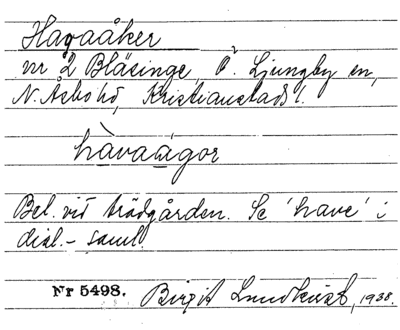 Havaåker
nr 2 Bläsinge, Ö. Ljungby sn,
N. Åsbo hd, Kristianstads l.
hàvaågor
Bel. vid trädgården. Se 'have' i
dial.-saml.
Nr 5498. Birgit Lundkvist, 1938.